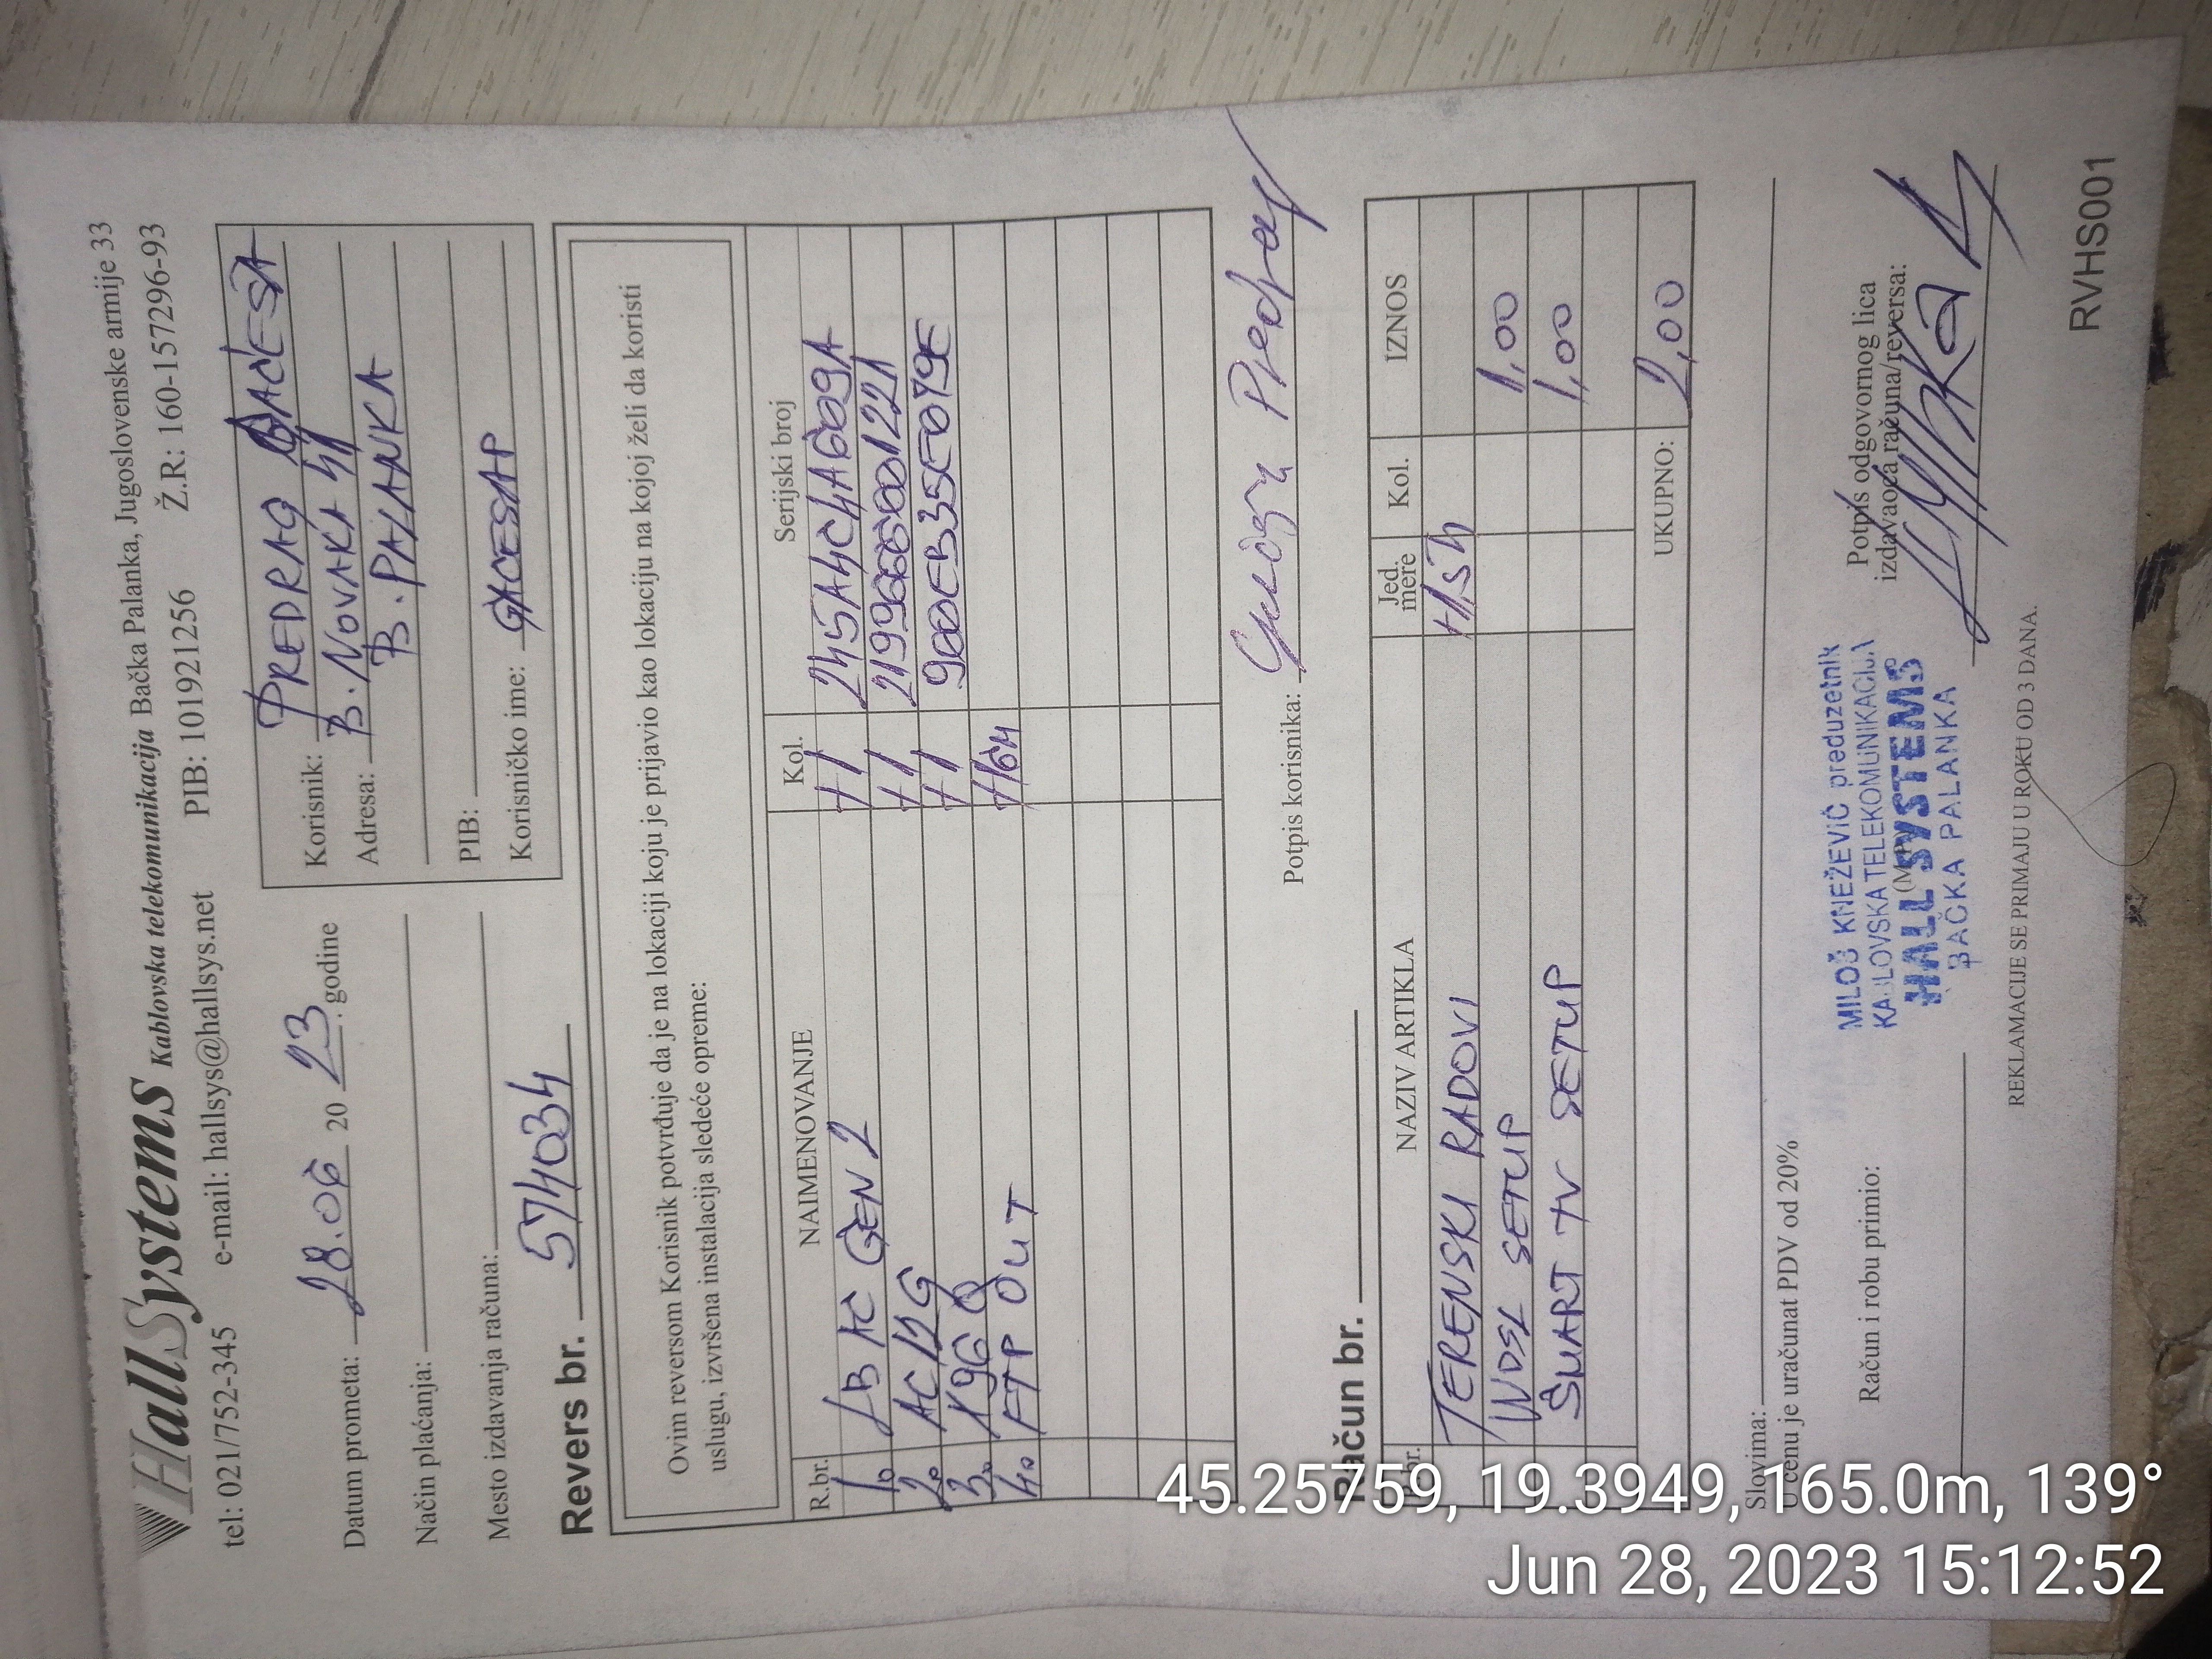 HallSystems Kablovska telekomunikacija Bačka Palanka, Jugoslovenske armije 33
tel: 021/752-345 e-mail: hallsys@hallsys.net PIB: 101921256 Ž.R: 160-157296-93
Datum prometa: 28.06 20 23. godine
Način plaćanja:
Mesto izdavanja računa:
Korisnik: PREDRAG GAĆEŠA
Adresa: B. NOVAKA 41
B. PALANKA
PIB:
Korisničko ime: GACESAP
Revers br. 574034
Ovim reversom Korisnik potvrđuje da je na lokaciji koju je prijavio kao lokaciju na kojoj želi da koristi
uslugu, izvršena instalacija sledeće opreme:
R.br. NAIMENOVANJE Kol. Serijski broj
1. LB AC GEN 2 +1 245A4C4A609A
2. AC12G +1 2199666001221
3. X96Q +1 900EB35E079E
4. FTP OUT +16m
Potpis korisnika: Predrag
Račun br.
R.br. NAZIV ARTIKLA Jed. mere Kol. IZNOS
TERENSKI RADOVI
WDSL SETUP 1,00
SMART TV SETUP 1,00
UKUPNO: 2,00
Slovima:
U cenu je uračunat PDV od 20%
Račun i robu primio:
(M.P.)
MILOŠ KNEŽEVIĆ preduzetnik
KABLOVSKA TELEKOMUNIKACIJA
HALL SYSTEMS
BAČKA PALANKA
Potpis odgovornog lica
izdavaoca računa/reversa:
REKLAMACIJE SE PRIMAJU U ROKU OD 3 DANA.
RVHS001
45.25759, 19.3949, 165.0m, 139°
Jun 28, 2023 15:12:52